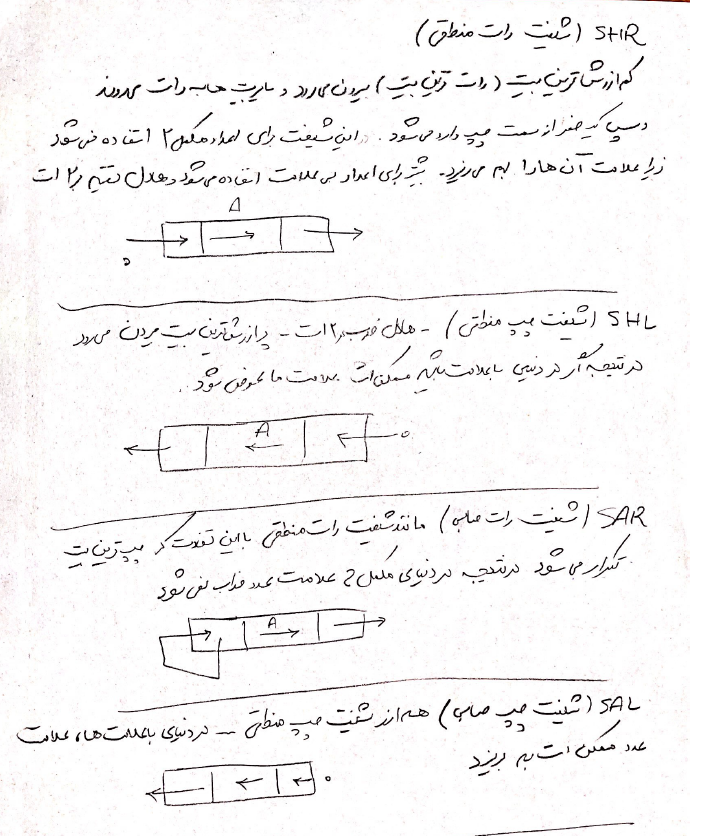 SHR (شیفت راست منطقی)
کم ارزش ترین بیت (راست ترین بیت) بیرون می رود و سایر بیت ها به راست می روند
و سپس یک صفر از سمت چپ وارد می شود. این شیفت برای اعداد مکمل ۲ استفاده نمی شود
زیرا علامت آن ها را بهم می ریزد. بیشتر برای اعداد بی علامت استفاده می شود و معادل تقسیم بر ۲ است
A
0
SHL (شیفت چپ منطقی) - معادل ضرب در ۲ است - پر ارزش ترین بیت بیرون می رود
در نتیجه اگر در دنیای با علامت باشیم ممکن است علامت ما عوض شود.
A
0
SAR (شیفت راست حسابی) مانند شیفت راست منطقی با این تفاوت که چپ ترین بیت
تکرار می شود در نتیجه در دنیای مکمل ۲ علامت عدد خراب نمی شود
A
SAL (شیفت چپ حسابی) همانند شیفت چپ منطقی - در دنیای با علامت ها، علامت
عدد ممکن است به بریزد
0